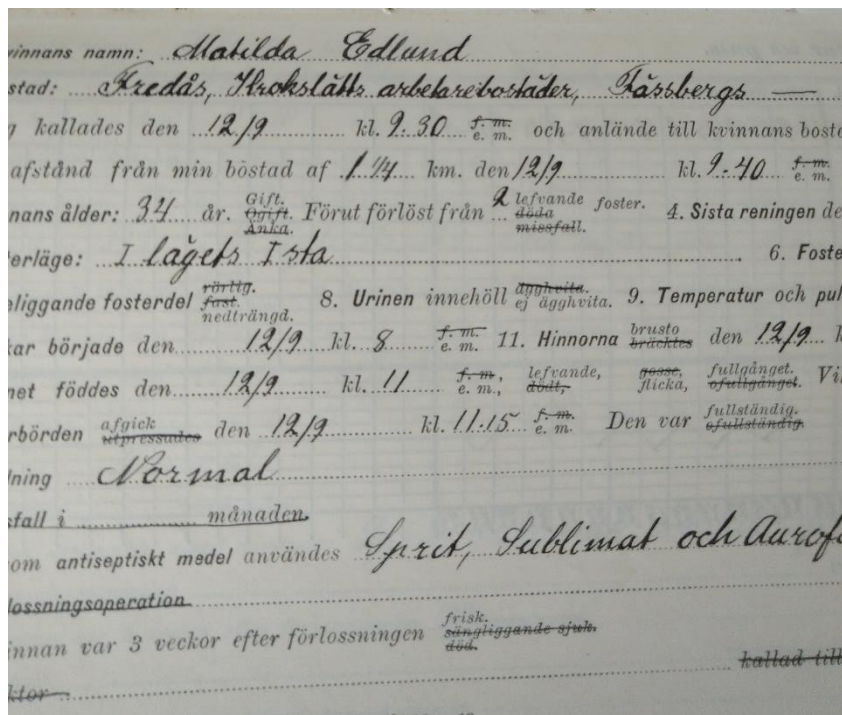 vinnans namn: Matilda Edlund
stad: Fredås, Krokslätts arbetarebostäder, Fässbergs —
g kallades den 12/9 kl. 9.30 f. m. e. m. och anlände till kvinnans bosta
afstånd från min bostad af 1 1/4 km. den 12/9 kl. 9.40 f. m. e. m.
nans ålder: 34 år. Gift. Ogift. Änka. Förut förlöst från 2 lefvande döda missfall. foster. 4. Sista reningen de
terläge: I lägets I sta 6. Foste
eliggande fosterdel rörlig. fast. nedträngd. 8. Urinen innehöll ägghvita. ej ägghvita. 9. Temperatur och pul
kar började den 12/9 kl. 8 f. m. e. m. 11. Hinnorna brusto bräcktes den 12/9 k
net föddes den 12/9 kl. 11 f. m., e. m., lefvande, dödt, gosse, flicka, fullgånget. ofullgånget. Vi
rbörden afgick utpressades den 12/9 kl. 11.15 f. m. e. m. Den var fullständig. ofullständig.
dning Normal
sfall i månaden.
om antiseptiskt medel användes Sprit, Sublimat och Aurof
lossningsoperation
innan var 3 veckor efter förlossningen frisk. sängliggande sjuk. död.
kallad till
ktor